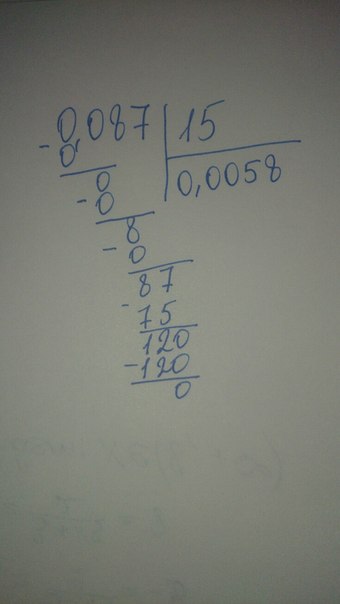 0,087 | 15
- 0 | 0,0058
0
- 0
8
- 0
87
- 75
120
- 120
0